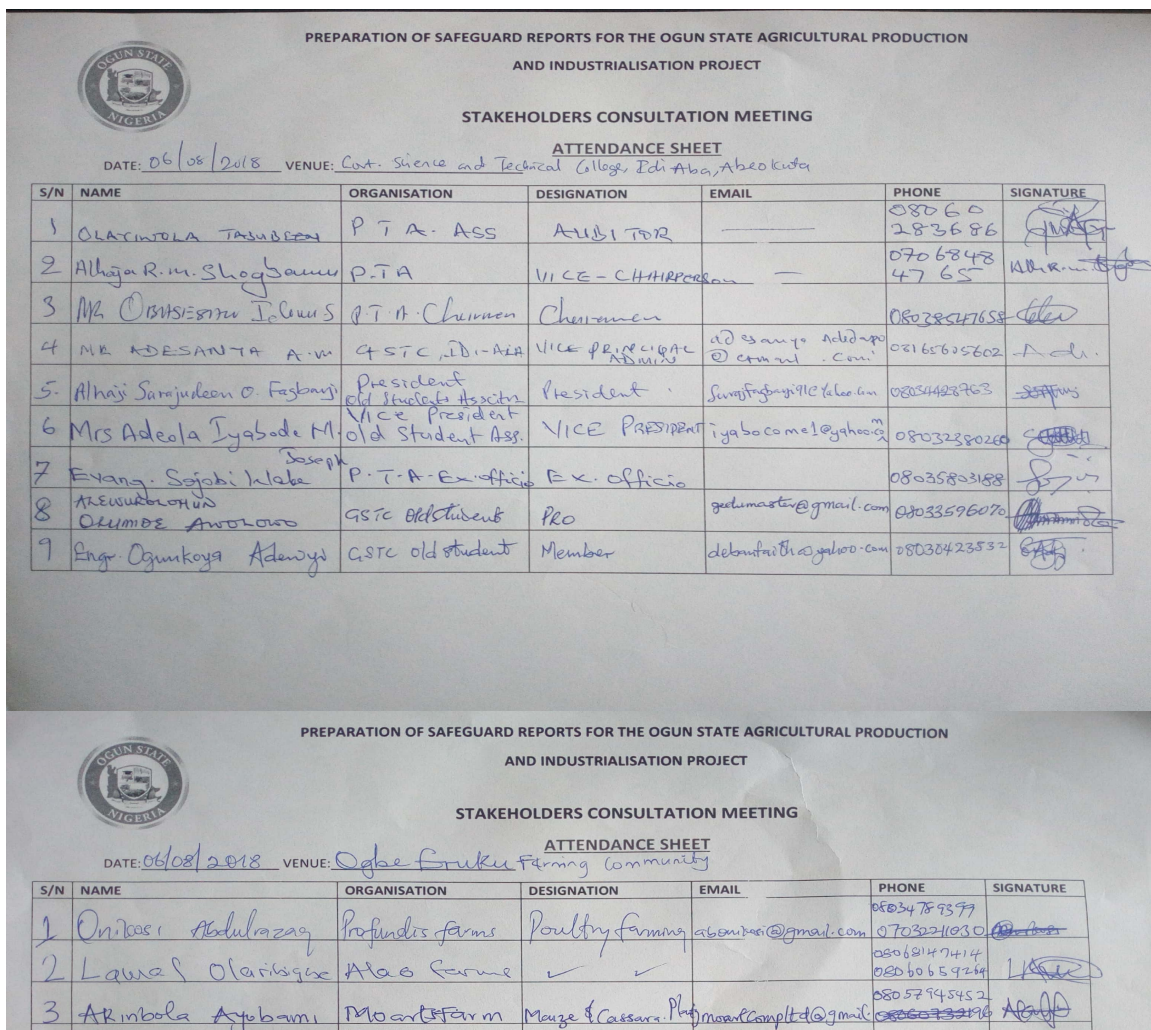 OGUN STATE
NIGERIA
PREPARATION OF SAFEGUARD REPORTS FOR THE OGUN STATE AGRICULTURAL PRODUCTION
AND INDUSTRIALISATION PROJECT
STAKEHOLDERS CONSULTATION MEETING
ATTENDANCE SHEET
DATE: 06/08/2018 VENUE: Govt. Science and Technical College, Idi Aba, Abeokuta
S/N NAME ORGANISATION DESIGNATION EMAIL PHONE SIGNATURE
1 P T A. ASS AUDITOR 08060 283686
2 Alhaja R.m. P.TA VICE-CHAIRPERSON 0706848 4765
3 MR P.T.A. Chairman Chairaman 08038547658
4 MR ADESANYA A.M GSTC, IDI-ABA VICE PRINCIPAL ADMIN 08165605602
5. Alhaji Sarajudeen O. Fagbayi President Old Students President 08034428763
6 Mrs Adeola Iyabode M. Vice President old Student Ass. VICE PRESIDENT iyabocome1@yahoo.com 08032380260
7 Evang. Sojobi Joseph P.T.A-Ex-officio Ex. Officio 08035803188
8 OLUMIDE AWOLOWO GSTC Old student PRO 08033596070
9 Engr. Ogunkoya GSTC old student Member 08030423532
OGUN STATE
NIGERIA
PREPARATION OF SAFEGUARD REPORTS FOR THE OGUN STATE AGRICULTURAL PRODUCTION
AND INDUSTRIALISATION PROJECT
STAKEHOLDERS CONSULTATION MEETING
ATTENDANCE SHEET
DATE: 06/08/2018 VENUE: Ogbe Eruku Farming Community
S/N NAME ORGANISATION DESIGNATION EMAIL PHONE SIGNATURE
1 Abdulrazaq Profundis farms Poultry farming 08034789399 07032211030
2 Lawal Alao farms 08068147414 08060659264
3 Akinbola Ayobami Moartsfarm 08057945452